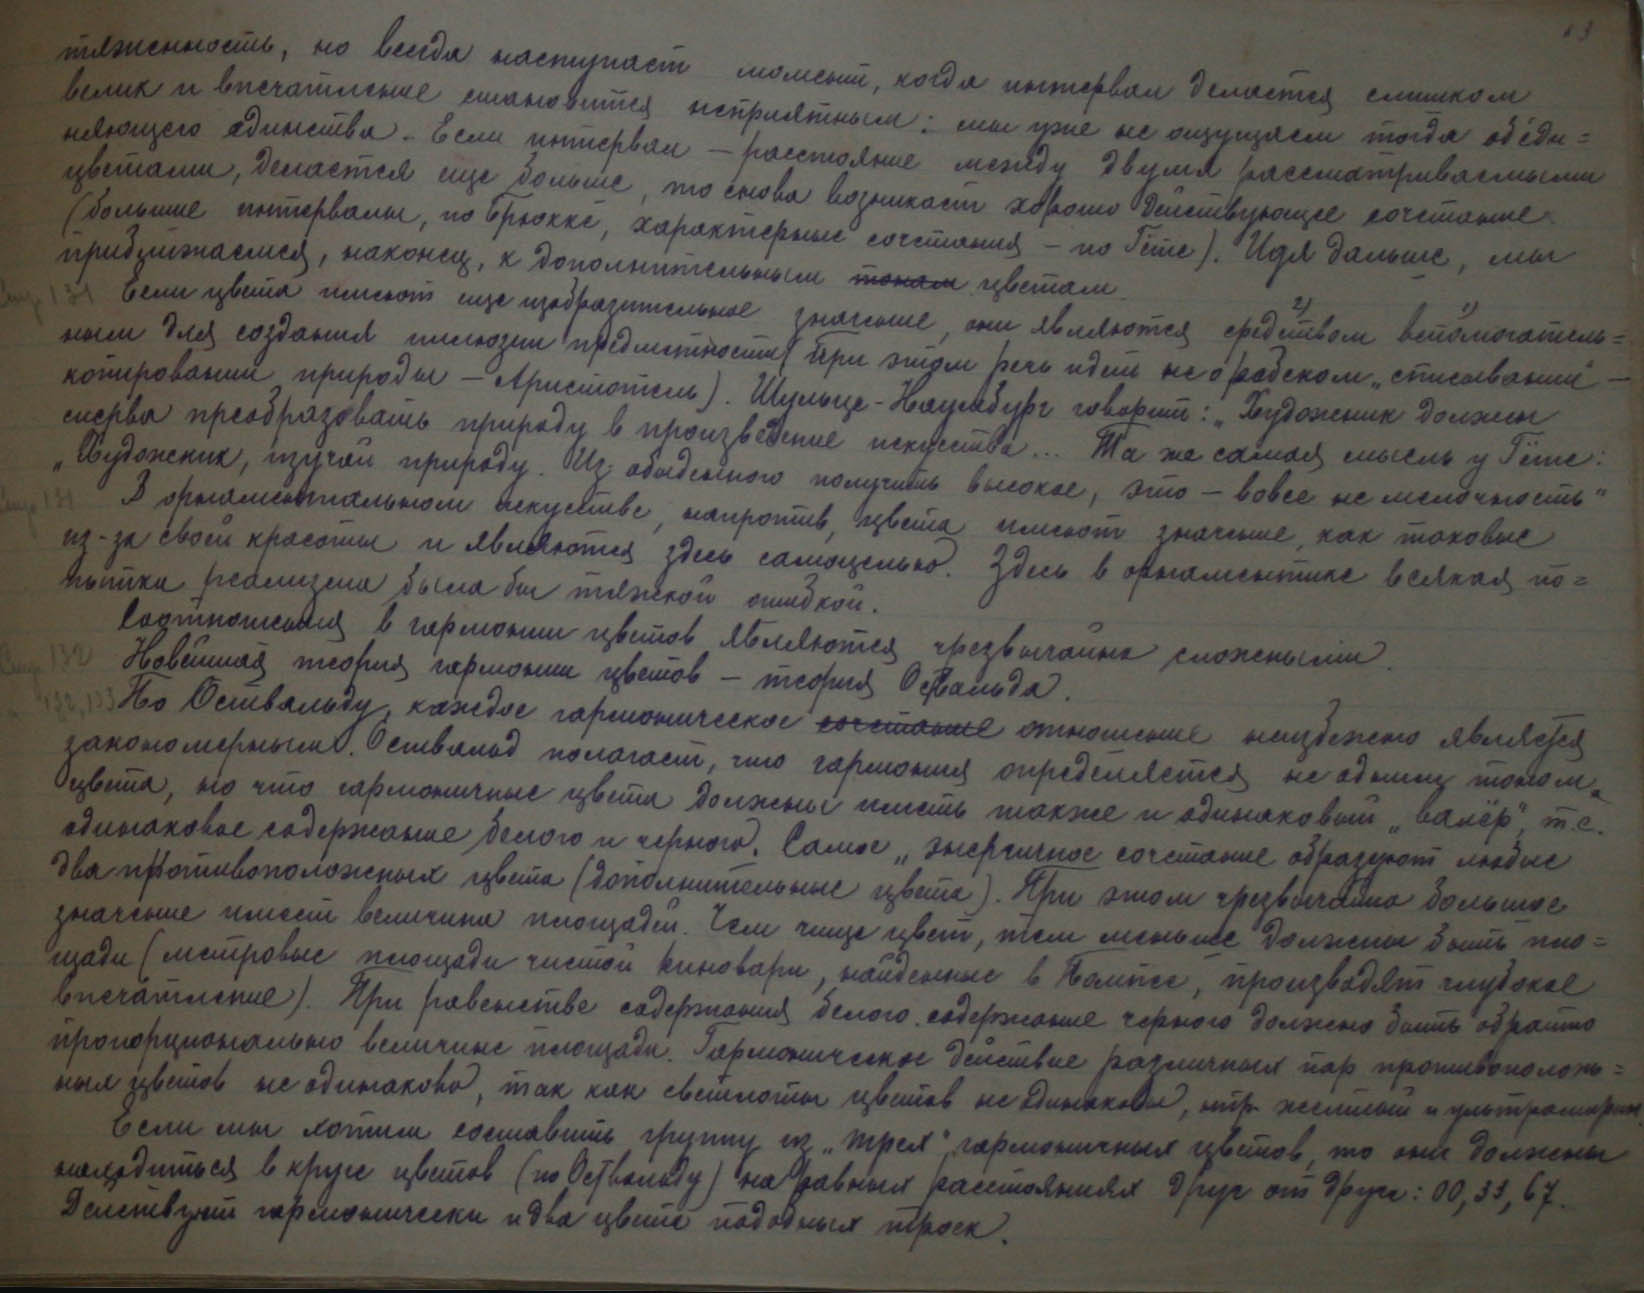 13
тяженность, но всегда наступает момент, когда интервал делается слишком
велик и впечатление становится неприятным: мы уже не ощущаем тогда объеди=
няющего единства. Если интервал – расстояние между двумя рассматриваемыми
цветами, делается еще больше, то снова возникает хорошо действующее сочетание.
(большие интервалы, по Брюкке, характерные сочетания – по Гёте). Идя дальше, мы
приближаемся, наконец, к дополнительным тонам цветам.
Стр. 131 Если цвета имеют еще изобразительное значение, они являются средством 2) вспомогатель= 1)
ным для создания иллюзии предметности (При этом речь идет не о рабском „списывании" –
копировании природы – Аристотель). Шульце-Наумбург говорит: „Художник должен
сперва преобразовать природу в произведение искусства... Та же самая мысль у Гёте:
„Художник, изучай природу. Из обыденного получить высокое, это – вовсе не мелочность"
Стр. 131 В орнаментальном искусстве, напротив, цвета имеют значение, как таковые
из-за своей красоты и являются здесь самоцелью. Здесь в орнаментике всякая по=
пытка реализма была бы тяжкой ошибкой.
Соотношения в гармонии цветов являются чрезвычайно сложными.
Стр. 132 Новейшая теория гармонии цветов – теория Оствальда.
132, 133 По Оствальду, каждое гармоническое сочетание отношение неизбежно является
закономерным. Оствальд полагает, что гармония определяется не одним тоном
цвета, но что гармоничные цвета должны иметь также и одинаковый „валёр", т.е.
одинаковое содержание белого и черного. Самое „энергичное сочетание образуют любые
два противоположных цвета (дополнительные цвета). При этом чрезвычайно большое
значение имеет величина площадей. Чем чище цвет, тем меньше должны быть пло=
щади (метровые площади чистой киновари, найденные в Помпее, производят глубокое
впечатление). При равенстве содержания белого содержание черного должно быть обратно
пропорционально величине площади. Гармоническое действие различных пар противополож=
ных цветов не одинаково, так как светлоты цветов не одинаковы, нпр. желтый и ультрамарин.
Если мы хотим составить группу из „трех" гармоничных цветов, то они должны
находиться в круге цветов (по Оствальду) на равных расстояниях друг от друга: 00, 33, 67.
Действуют гармонически и два цвета подобных троек.